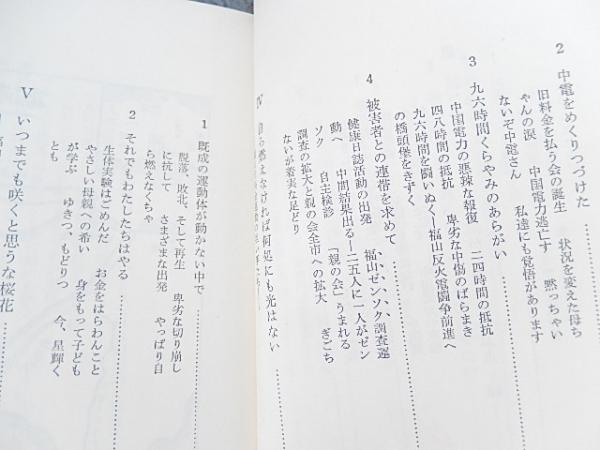 2 中電をめくりつづけた
旧料金を払う会の誕生 状況を変えた母ち
ゃんの涙 中国電力逃亡す 黙っちゃい
ないぞ中電さん 私達にも覚悟があります
3 九六時間くらやみのあらがい
中国電力の悪辣な報復 二四時間の抵抗
四八時間の抵抗 卑劣な中傷のばらまき
九六時間を闘いぬく―福山反火電闘争前進へ
の橋頭堡をきずく
4 被害者との連帯を求めて
福山ゼンソク調査運
健康日誌活動の出発
動へ 中間結果出る―二五人に一人がゼン
ソク 自主検診 「親の会」うまれる
調査の拡大と親の会全市への拡大 ぎこち
ないが着実な足どり
Ⅳ 自ら燃えなければ何処にも光はない
1 既成の運動体が動かない中で
脱落、敗北、そして再生 卑劣な切り崩し
に抗して さまざまな出発 やっぱり自
ら燃えなくちゃ
2 それでもわたしたちはやる
生体実験はごめんだ お金をはらわんこと
やさしい母親への希い 身をもって子ども
が学ぶ ゆきつ、もどりつ 今、星輝く
とも
Ⅴ いつまでも咲くと思うな桜花